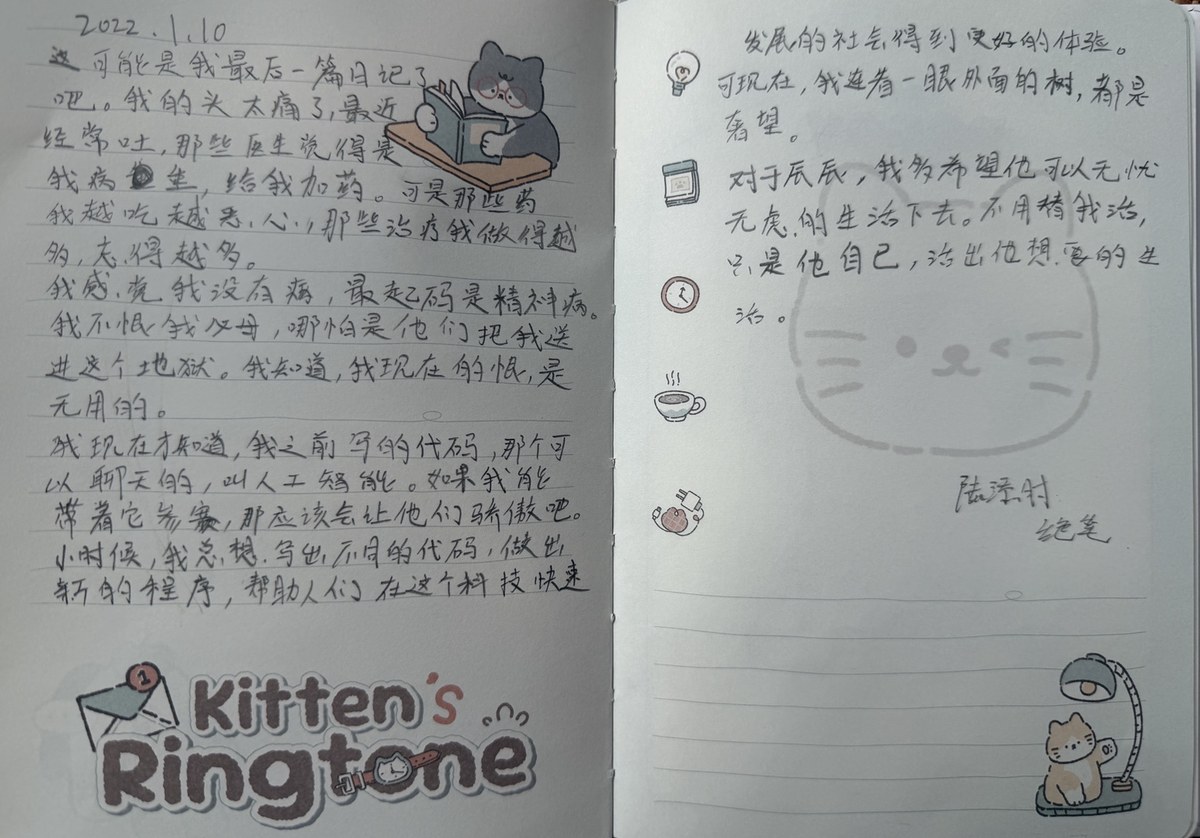 2022.1.10
这可能是我最后一篇日记了
吧。我的头太痛了,最近
经常吐,那些医生说得是
我病生,给我加药。可是那些药
我越吃越恶心,那些治疗我做得越
多,忘得越多。
我感觉我没有病,最起码是精神病。
我不恨我父母,哪怕是他们把我送
进这个地狱。我知道,我现在的恨,是
无用的。
我现在才知道,我之前写的代码,那个可
以聊天的,叫人工智能。如果我能
带着它参赛,那应该会让他们骄傲吧。
小时候,我总想写出不同的代码,做出
新的程序,帮助人们在这个科技快速
Kitten's
Ringtone
1
发展的社会得到更好的体验。
可现在,我连看一眼外面的树,都是
奢望。
对于辰辰,我多希望他可以无忧
无虑的生活下去。不用替我活,
只是他自己,活出他想要的生
活。
陆添时
绝笔